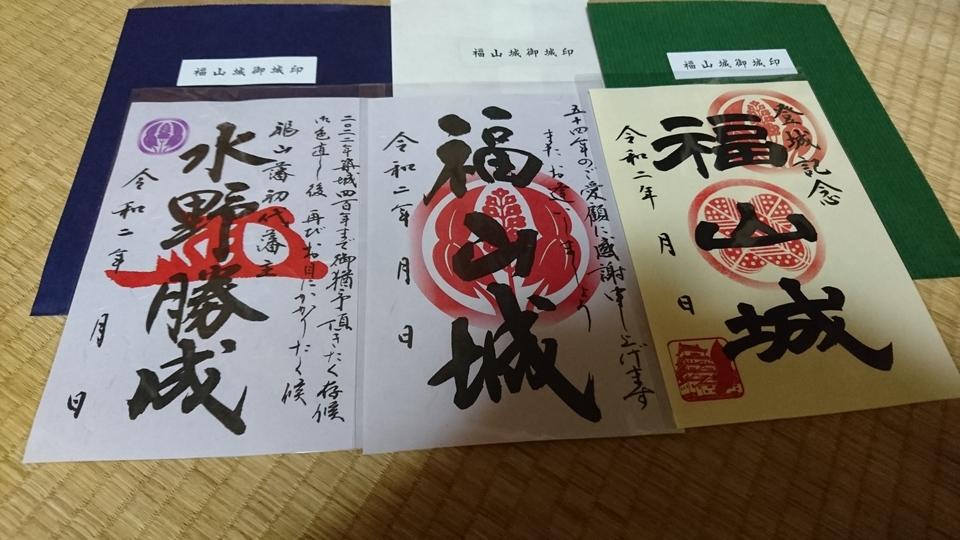 福山城御城印
福山城御城印
福山城御城印
二〇二二年築城四百年まで御猶予頂きたく存候
御色直し後 再びお目にかかりたく候
福山藩初代藩主
水野勝成
令和二年 月 日
五十四年のご愛顧に感謝申し上げます
またお逢いしましょう
福山城
令和二年 月 日
登城記念
福山城
令和二年 月 日